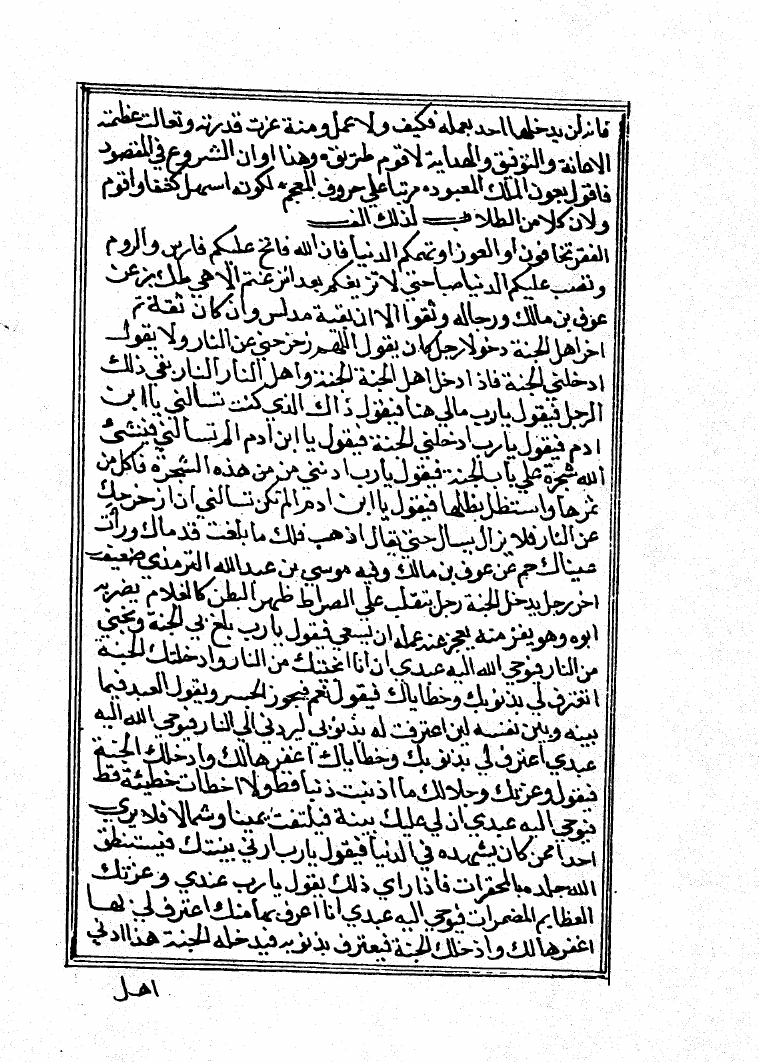 فانه لن يدخلها احد بعمله فكيف ولا عمل ومنة عزت قدرته وتعالت عظمته
الاعانة والتوفيق والهداية لاقوم طريق وهذا اوان الشروع في المقصود
فاقول بعون الملك المعبود مرتبا علي حروف المعجم لكونه اسهل كشفا واقوم
ولان كلا من الطلاب لذلك الف
الفقر تخافون او العوز او تهمكم الدنيا فان الله فاتح عليكم فارس والروم
وتصب عليكم الدنيا صبا حتي لا تزيغكم بعد ان زغتم الا هي طك بز عن
عوف بن مالك ورجاله وثقوا الا ان بقية مدلس وان كان ثقة تم
اخر اهل الجنة دخولا رجل كان يقول اللهم زحزحني عن النار ولا يقول
ادخلني الجنة فاذا دخل اهل الجنة الجنة واهل النار النار بقي ذلك
الرجل فيقول يا رب مالي هنا فيقول ذاك الذي كنت تسالني يا ابن
ادم فيقول يا رب ادخلني الجنة فيقول يا ابن ادم الم تسالني فينشئ
الله شجرة علي باب الجنة فيقول يا رب ادنني من هذه الشجرة فاكل من
ثمرها واستظل بظلها فيقول يا ابن ادم الم تكن تسالني ان ازحزحك
عن النار فلا يزال يسال حتي يقال اذهب فلك ما بلغت قدماك ورأت
عيناك حم عن عوف بن مالك وفيه موسي بن عبد الله الترمذي ضعيف
اخر رجل يدخل الجنة رجل يتقلب علي الصراط ظهر البطن كالغلام يضربه
ابوه وهو يفر منه يعجز عنه عمله ان يسعي فيقول يا رب بلغ بي الجنة ونجني
من النار فيوحي الله اليه عبدي ان انا انجيتك من النار وادخلتك الجنة
اتعترف لي بذنوبك وخطاياك فيقول نعم فيجوز الجسر ويقول العبد فيما
بينه وبين نفسه لئن اعترفت له بذنوبي ليردني الي النار فيوحي الله اليه
عبدي اعترف لي بذنوبك وخطاياك اغفرها لك وادخلك الجنة
فيقول وعزتك وجلالك ما اذنبت ذنبا قط ولا اخطات خطيئة قط
فيوحي اليه عبدي ان لي عليك بينة فيلتفت يمينا وشمالا فلا يري
احدا ممن كان يشهده في الدنيا فيقول يا رب ارني بينتك فيستنطق
الله جلده بالمحقرات فاذا راي ذلك يقول يا رب عندي وعزتك
العظايم المضمرات فيوحي اليه عبدي انا اعرف بها منك اعترف لي بها
اغفرها لك وادخلك الجنة فيعترف بذنوبه فيدخله الجنة هذا ادني
اهل